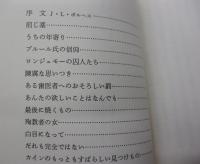 序文 J・L・ボルヘス
前じ墓
うちの年寄り
ブルール氏の信仰
ロンジュモーの囚人たち
陳腐な思いつき
ある歯医者へのおそろしい罰
あんたの欲しいことはなんでも
最後に焼くもの
殉教者の女
白目になって
だれも完全ではない
カインのもっともすばらしい見つけもの